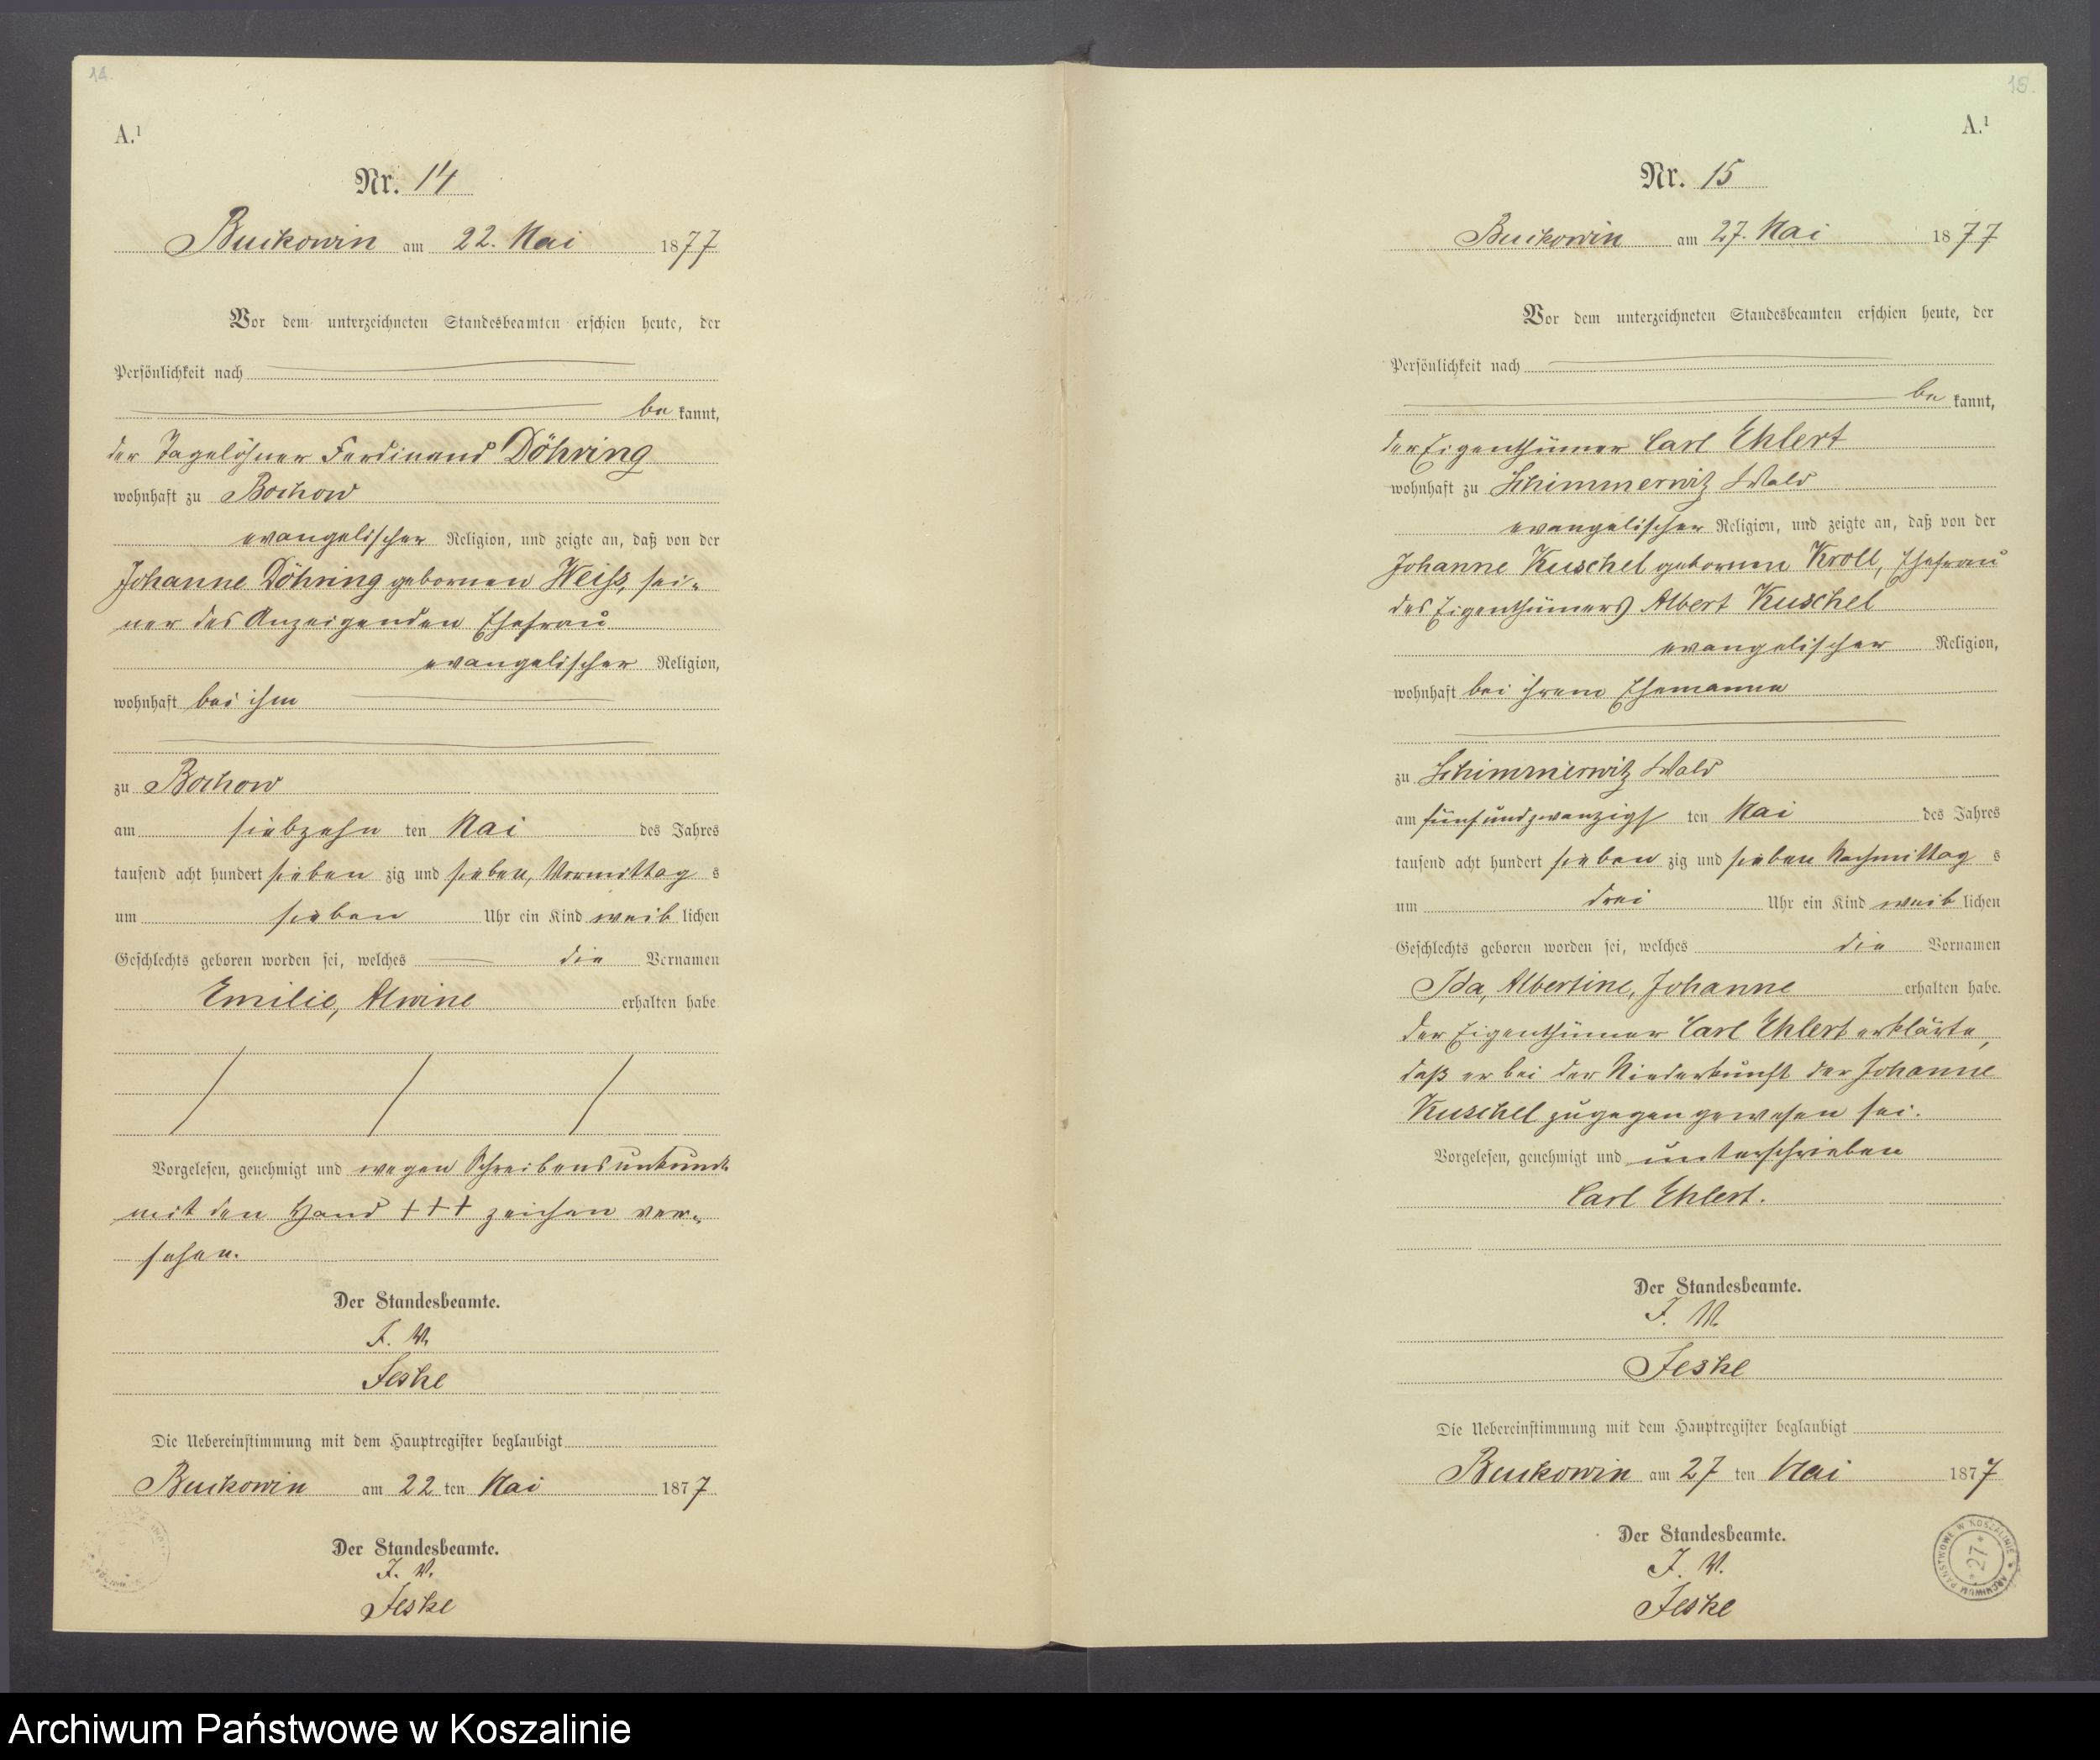 14.
A.¹
Nr. 14
Buckowin am 22. Mai 1877
Vor dem unterzeichneten Standesbeamten erschien heute, der
Persönlichkeit nach
be kannt,
der Tagelöhner Ferdinand Döhring
wohnhaft zu Bochow
evangelischer Religion, und zeigte an, daß von der
Johanne Döhring gebornen Weiss, sei-
ner des Anzeigenden Ehefrau
evangelischer Religion,
wohnhaft bei ihm
zu Bochow
am siebzehn ten Mai des Jahres
tausend acht hundert sieben zig und sieben, Vormittag s
um sieben Uhr ein Kind weib lichen
Geschlechts geboren worden sei, welches die Vornamen
Emilie, Alwine erhalten habe
Vorgelesen, genehmigt und wegen Schreibensunkunde
mit den Hand +++ zeichen ver-
sehen.
Der Standesbeamte.
J. V.
Jeske
Die Uebereinstimmung mit dem Hauptregister beglaubigt
Buckowin am 22 ten Mai 1877
Der Standesbeamte.
J. V.
Jeske
15.
A.¹
Nr. 15
Buckowin am 27. Mai 1877
Vor dem unterzeichneten Standesbeamten erschien heute, der
Persönlichkeit nach
be kannt,
der Eigenthümer Carl Ehlert
wohnhaft zu Schimmerwitz Wald
evangelischer Religion, und zeigte an, daß von der
Johanne Kuschel gebornen Kroll, Ehefrau
des Eigenthümers Albert Kuschel
evangelischer Religion,
wohnhaft bei ihrem Ehemanne
zu Schimmerwitz Wald
am fünfundzwanzigs ten Mai des Jahres
tausend acht hundert sieben zig und sieben Nachmittag s
um drei Uhr ein Kind weib lichen
Geschlechts geboren worden sei, welches die Vornamen
Ida, Albertine, Johanne erhalten habe.
Der Eigenthümer Carl Ehlert erklärte,
daß er bei der Niederkunft der Johanne
Kuschel zugegen gewesen sei.
Vorgelesen, genehmigt und unterschrieben
Carl Ehlert.
Der Standesbeamte.
J. V.
Jeske
Die Uebereinstimmung mit dem Hauptregister beglaubigt
Buckowin am 27 ten Mai 1877
Der Standesbeamte.
J. V.
Jeske
ARCHIWUM PAŃSTWOWE W KOSZALINIE
*27*
Archiwum Państwowe w Koszalinie